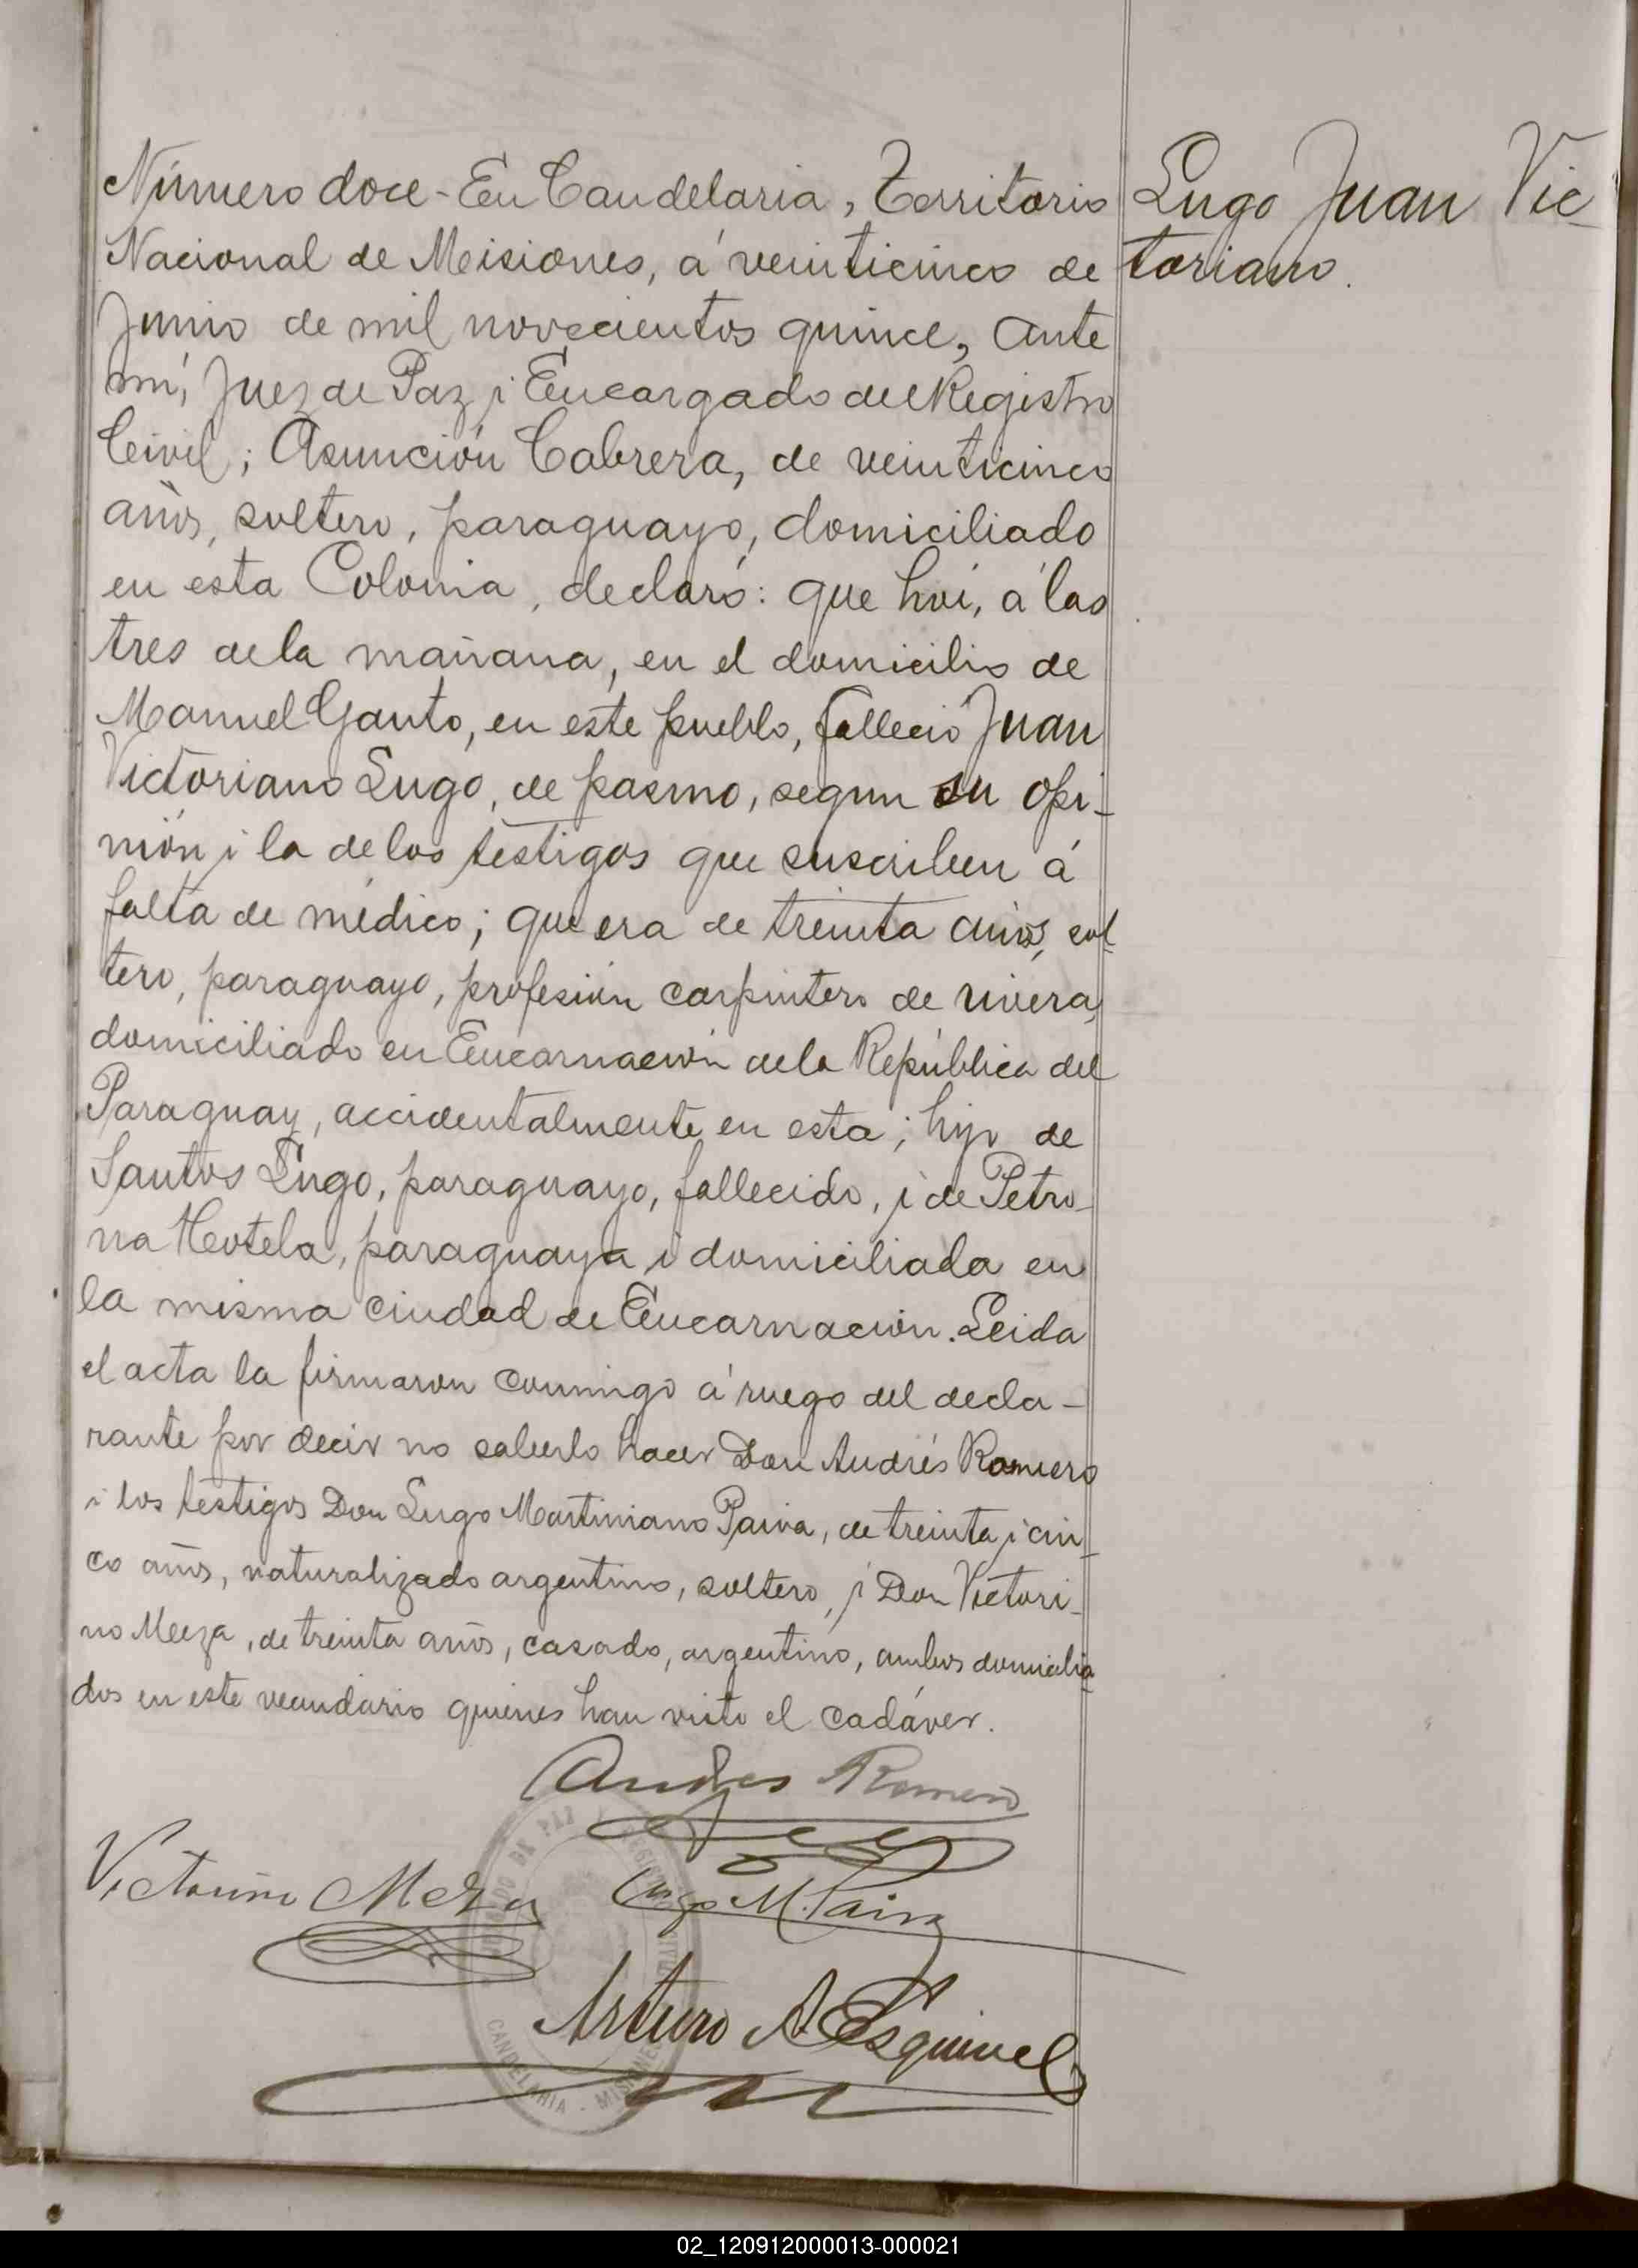 Número doce - En Candelaria, Territorio
Nacional de Misiones, á veinticinco de
Junio de mil novecientos quince, ante
mí, Juez de Paz i Encargado del Registro
Civil; Asunción Cabrera, de veinticinco
años, soltero, paraguayo, domiciliado
en esta Colonia, declaró: que hoi, á las
tres de la mañana, en el domicilio de
Manuel Gauto, en este pueblo, falleció Juan
Victoriano Lugo, de pasmo, segun su opi-
nión i la de los testigos que suscriben á
falta de médico; que era de treinta años, sol-
tero, paraguayo, profesión carpintero de rivera,
domiciliado en Encarnación de la República del
Paraguay, accidentalmente en esta; hijo de
Santos Lugo, paraguayo, fallecido, i de Petro-
na Meotela, paraguaya i domiciliada en
la misma ciudad de Encarnación. Leida
el acta la firmaron conmigo á ruego del decla-
rante por decir no saberlo hacer Don Andrés Romero
i los testigos Don Lugo Martiniano Paiva, de treinta i cin-
co años, naturalizado argentino, soltero, i Don Victori-
no Meza, de treinta años, casado, argentino, ambos domicilia-
dos en este vecindario quienes han visto el cadáver.
Lugo Juan Vic-
toriano.
Andres Romero
Victorino Meza
Lugo M. Paiva
Arturo A Esquivel
JUZGADO DE PAZ Y REGISTRO CIVIL
CANDELARIA - MISIONES
02_120912000013-000021